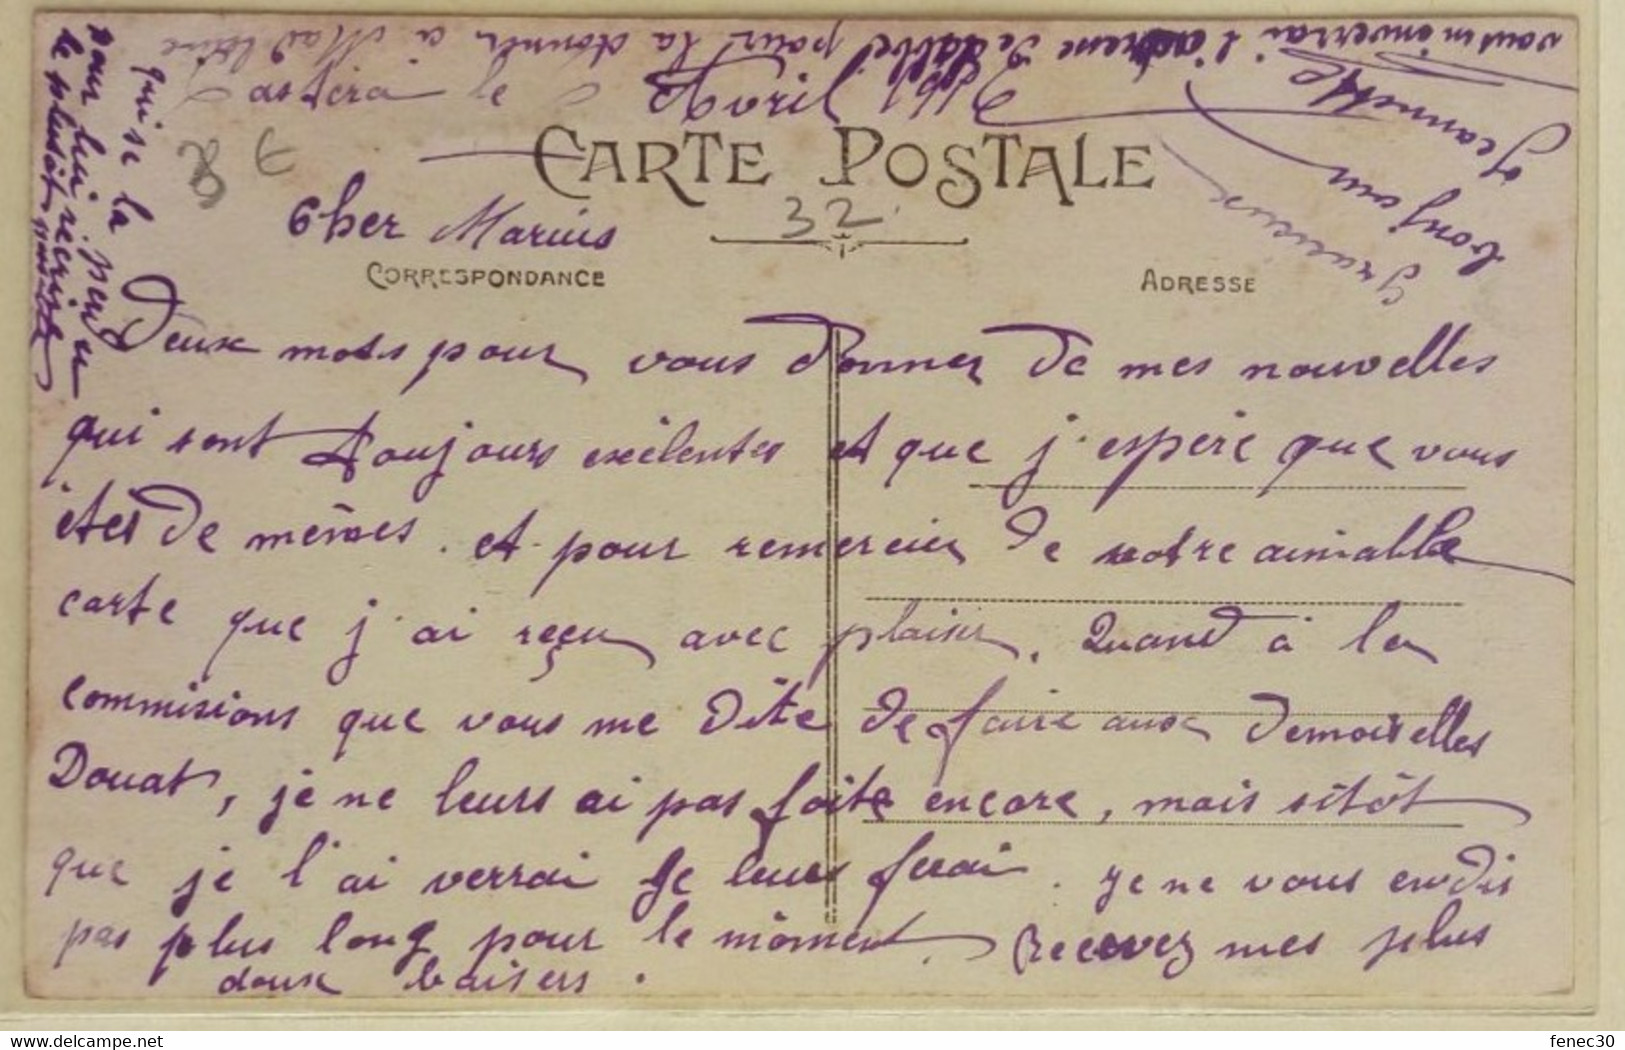 CARTE POSTALE
32
Cher Marius
CORRESPONDANCE
ADRESSE
Deux mots pour vous donner de mes nouvelles
qui sont toujours exélentes et que j'espère que vous
êtes de mêmes. et pour remercier de votre aimable
carte que j'ai reçu avec plaisir. Quand à la
commisions que vous me dite de faire aux demoiselles
Douat, je ne leurs ai pas faite encore, mais sitôt
que je l'ai verrai je leurs ferai. je ne vous endis
pas plus long pour le môment. Recevez mes plus
doux baisers.
Jeannette
bonjour
vous m'enverrai l'adresse de pour la donner a Madeleine
qui se la perdu
pour lui récrire
le plutôt possible
fenec30